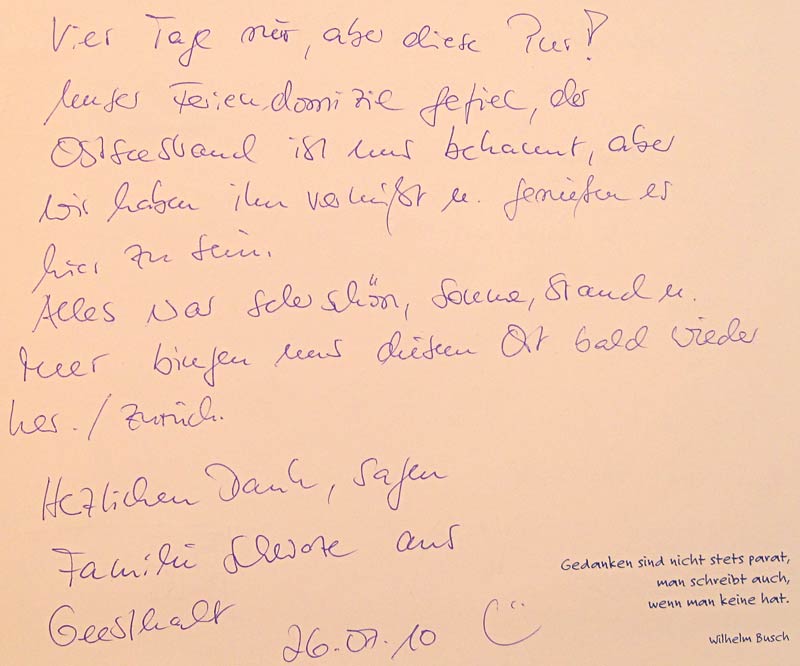 Vier Tage nur, aber diese Pur!
Unser Feriendomizil gefiel, der
Ostseestrand ist uns bekannt, aber
wir haben ihn vermißt u. genießen es
hier zu sein.
Alles war sehr schön, Sonne, Strand u.
Meer bringen uns diesen Ort bald wieder
her. / zurück.
Herzlichen Dank, sagen
Familie aus
Geesthacht
26.07.10
Gedanken sind nicht stets parat,
man schreibt auch,
wenn man keine hat.
Wilhelm Busch